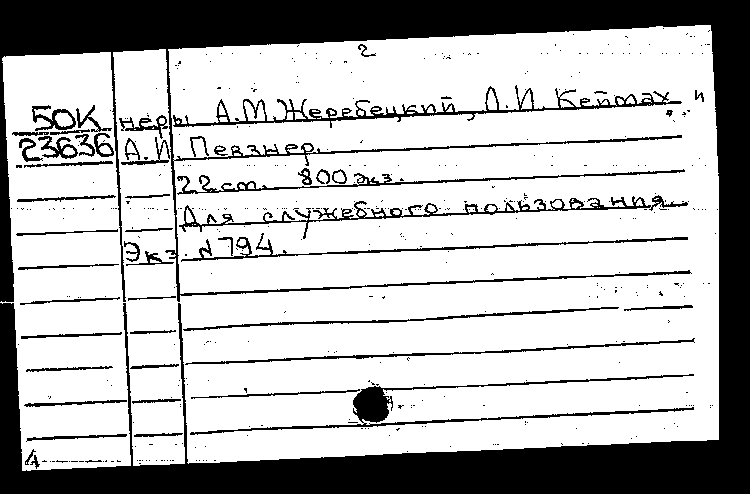 2
50К неры А.М.Жеребецкий, Л.И. Кеймах и
23636 А.И. Певзнер.
22 ст. 800 экз.
Для служебного пользования.
Экз. №794.